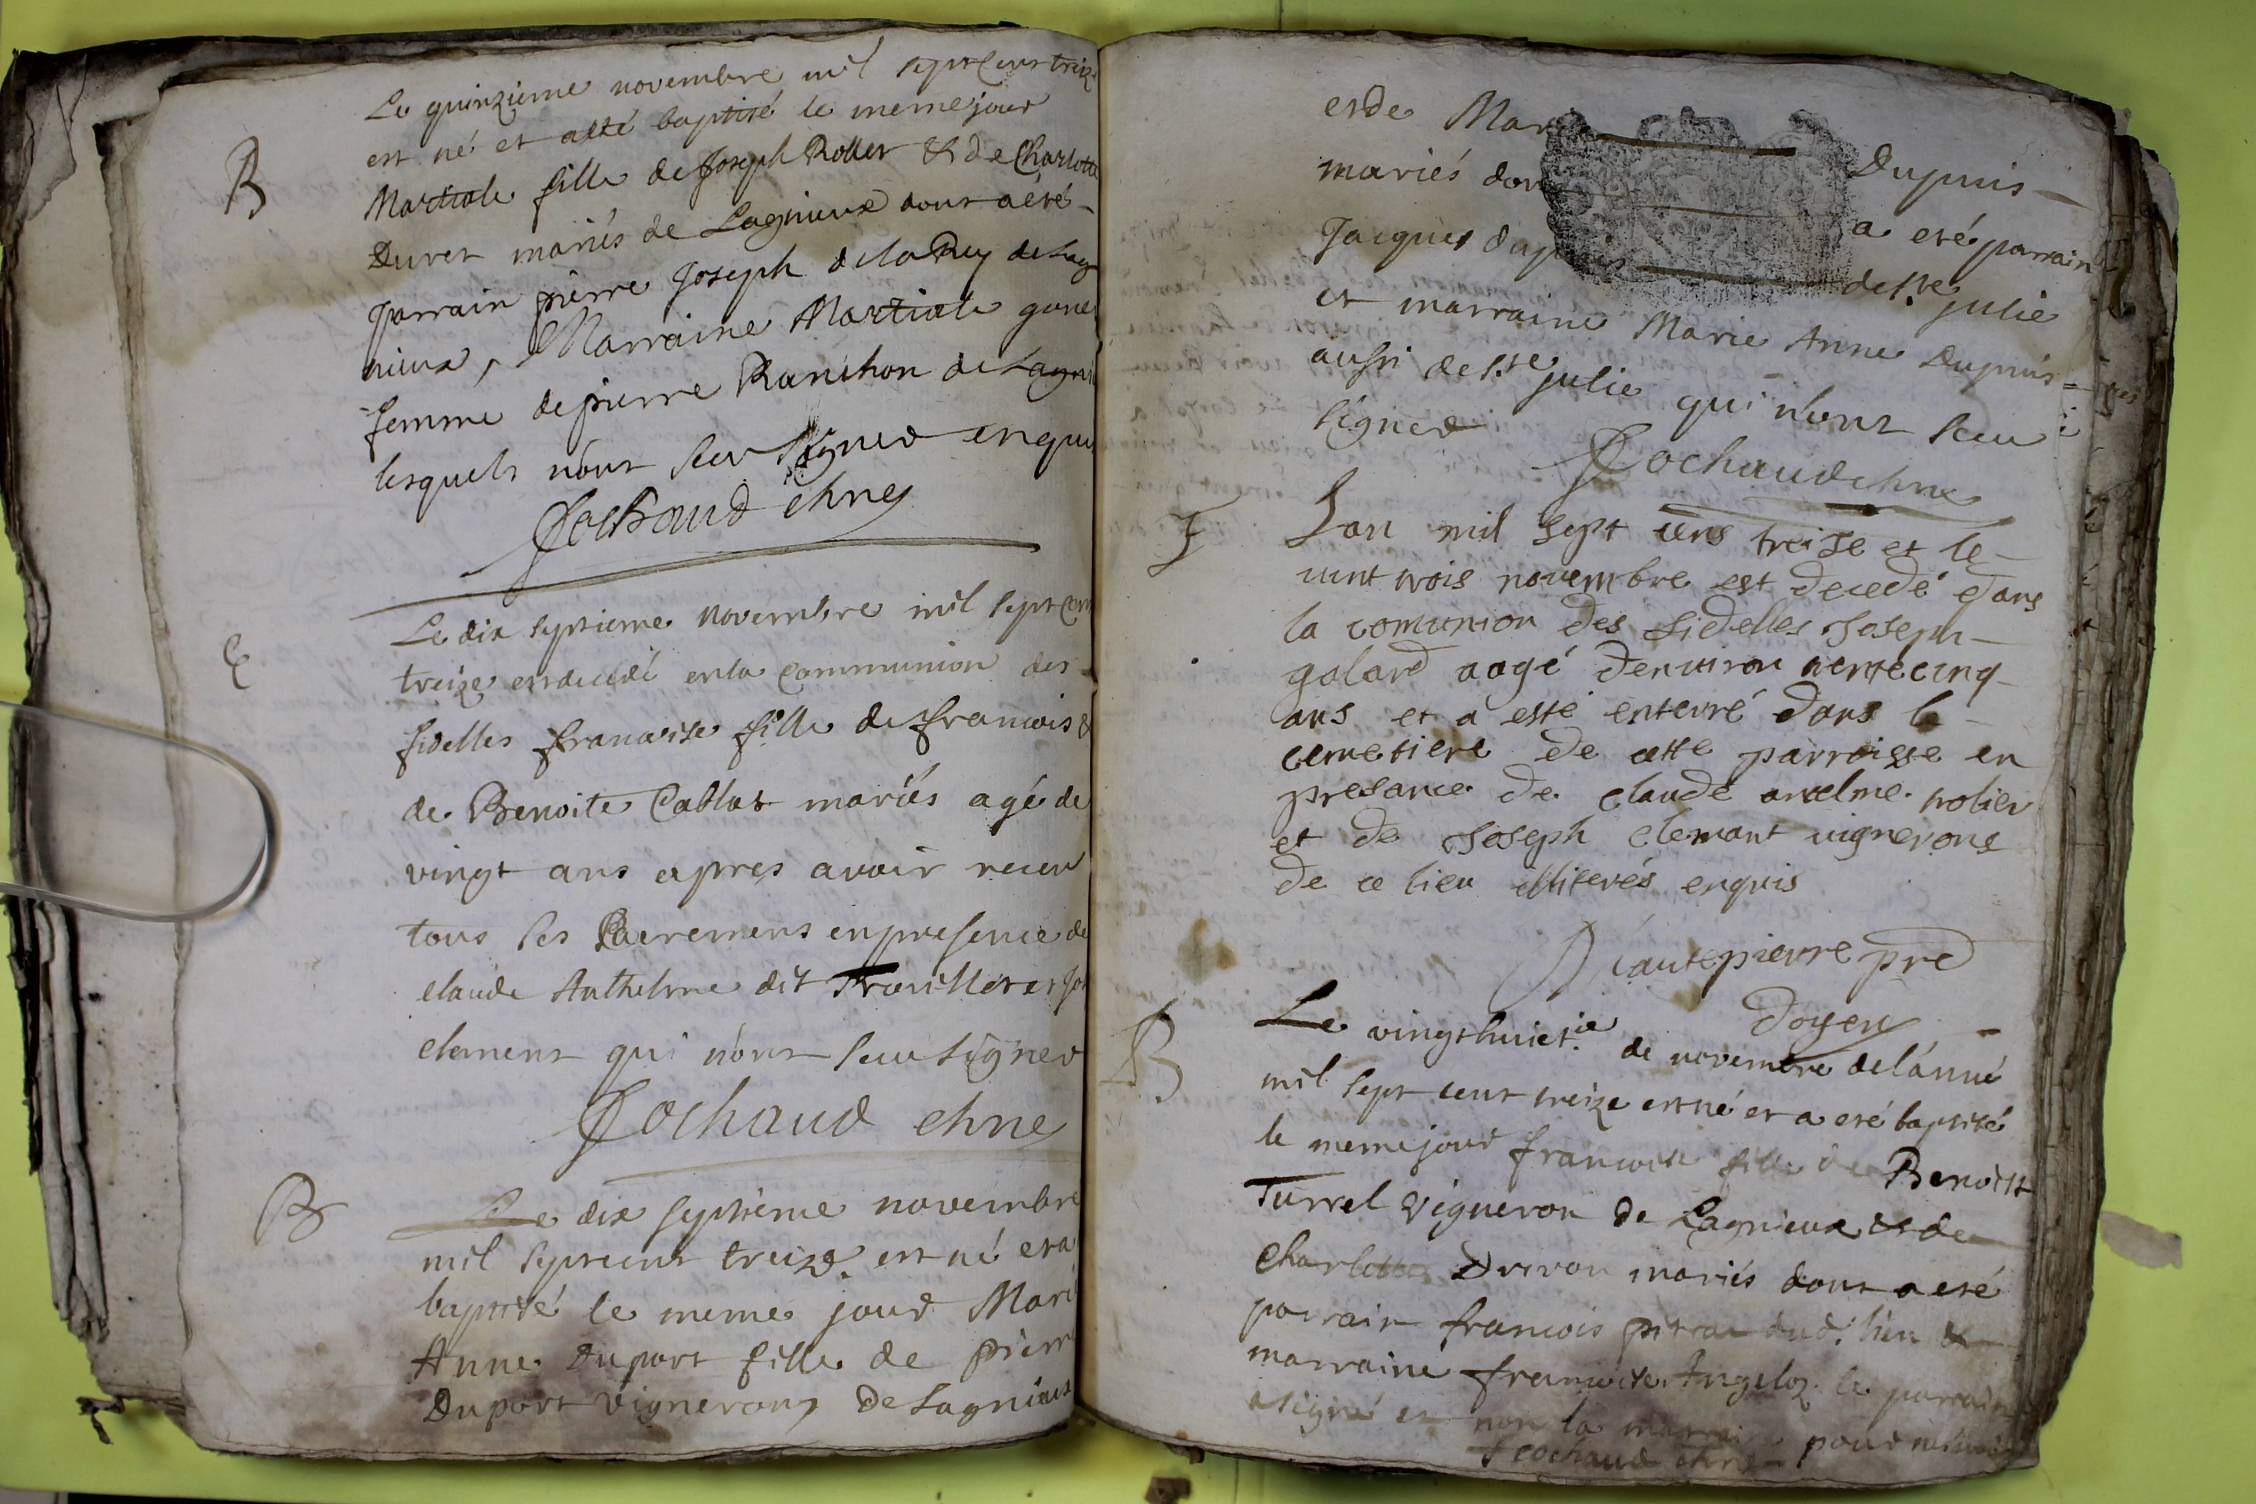 Le quinzieme novembre mil sept cens treize
est né et a été baptisé le meme jour
B
Martiale fille de Joseph Rollet & de Charlotte
Duret mariés de Lagnieux dont a eté
parrain pierre Joseph de la Rey de Lag
nieux, Marraine Martiale
femme de pierre Ranchon de Lagni
lesquels n'ont sceu signer enquis
Cochaud chne
Le dix septieme novembre mil sept cent
treize est decedé en la communion des
fidelles francoise fille de francois &
de Benoite Cablat mariés agé de
vingt ans apres avoir receu
tous ses sacremens en presence de
claude Anthelme dit Trouillet et Jo
clement qui n'ont sceu signer
Cochaud chne
B
Le dix septieme novembre
mil sept cent treize est né et a
baptisé le meme jour Mari
Anne Duport fille de pierre
Duport Vigneron de Lagnieux
et de Mar Dupuis
mariés don a eté parrain
Jacques dup de ste julie
et marraine Marie Anne Dupuis
aussi de ste julie qui n'ont sceu
signer
Cochaud chne
Lan mil sept cens treise et le
vint trois novembre est decedé dans
la comunion des fidelles Joseph
galard aagé denviron trentecinq
ans et a esté enterré dans le
cemetiere de cette parroisse en
presance de claude anelme trolier
et de Joseph clemant vignerons
de ce lieu illiterés enquis
hautepierre pre
doyen
B
Le vingthuict.ie de novembre de l'anné
mil sept cent treize est né et a eté baptisé
le meme jour francoise fille de Benoist
Turrel Vigneron de Lagnieux & de
Charlotte Drivon mariés dont a eté
parrain francois dud. lieu &
marraine francoise Angeloz le parrain
a signé et non la marraine pour
Cochaud chne